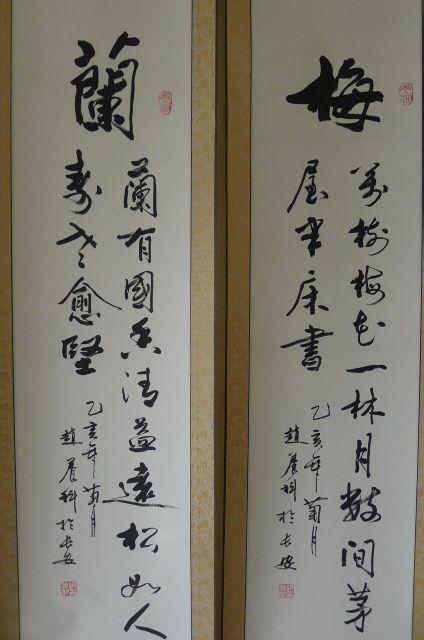 梅
萬樹梅花一林月數間茅
屋半床書
乙亥年菊月
趙養科於長安
蘭
蘭有國香清益遠松如人
壽老愈堅
乙亥年菊月
趙養科於長安